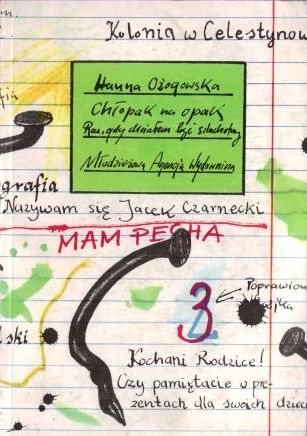 m.
Kolonia w Celestynow
Hanna Ożogowska
Chłopak na opak
Raz, gdy chciałem być szlachetny
Młodzieżowa Agencja Wydawnicza
fia
ografia
Nazywam się Jacek Czarnecki
MAM PECHA
3
Poprawion
dwójka
lski
Kochani Rodzice!
Czy pamiętacie o pre-
zentach dla swoich dziec